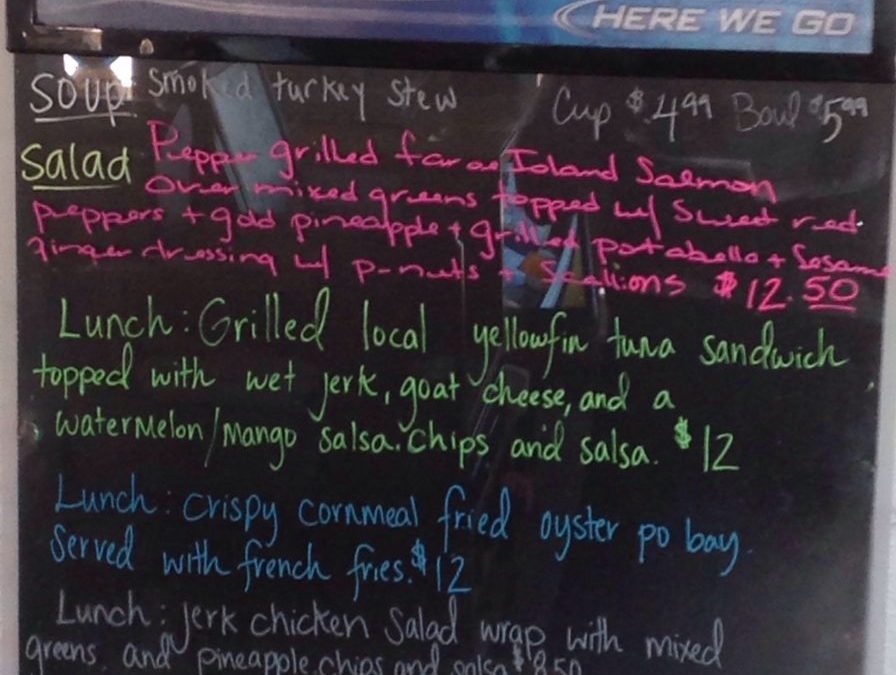 HERE WE GO
Soup: Smoked turkey stew Cup $4.99 Bowl $5.99
Salad Pepper grilled faroe Island Salmon
over mixed greens topped w/ Sweet red
peppers + gold pineapple + grilled portabello + Sesame
ginger dressing w/ p-nuts + Scallions $12.50
Lunch: Grilled local yellowfin tuna sandwich
topped with wet jerk, goat cheese, and a
watermelon/mango salsa. Chips and salsa. $12
Lunch: crispy cornmeal fried oyster po bay.
Served with french fries. $12
Lunch: jerk chicken Salad wrap with mixed
greens, and pineapple. chips and salsa $8.50